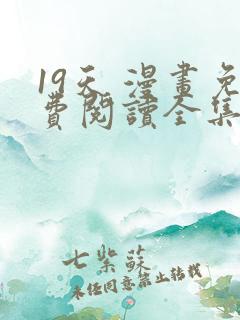 19天 漫畫免
費閱讀全集
七紫蘇
未经同意禁止转载